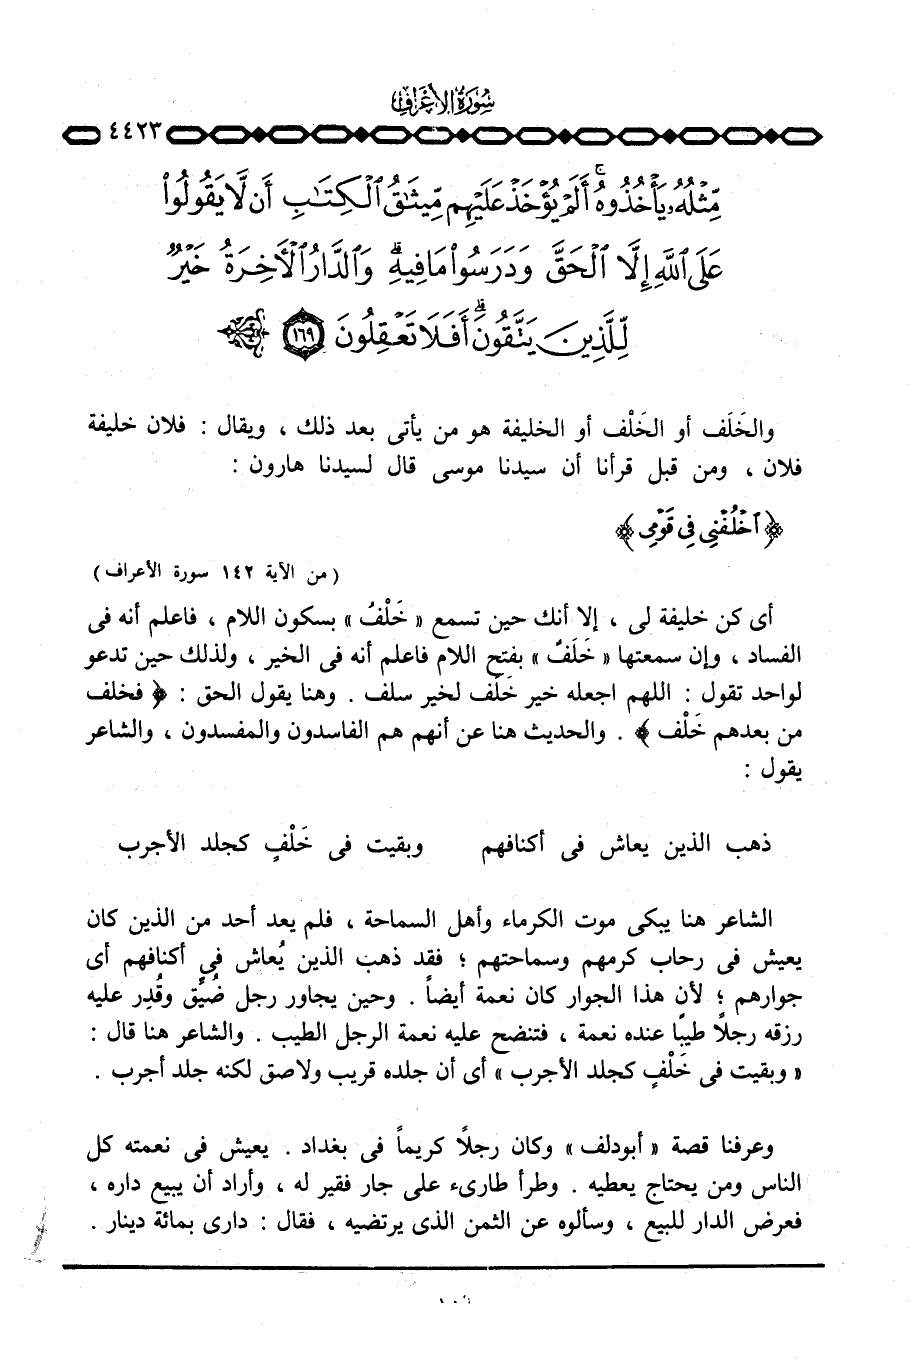 سورة الأعراف
٤٤٢٣
مِّثْلُهُ يَأْخُذُوهُ ۚ أَلَمْ يُؤْخَذْ عَلَيْهِم مِّيثَٰقُ ٱلْكِتَٰبِ أَن لَّا يَقُولُوا۟
عَلَى ٱللَّهِ إِلَّا ٱلْحَقَّ وَدَرَسُوا۟ مَا فِيهِ ۗ وَٱلدَّارُ ٱلْأَخِرَةُ خَيْرٌ
لِّلَّذِينَ يَتَّقُونَ ۗ أَفَلَا تَعْقِلُونَ ١٦٩
والخَلَف أو الخَلْف أو الخليفة هو من يأتى بعد ذلك ، ويقال : فلان خليفة
فلان ، ومن قبل قرأنا أن سيدنا موسى قال لسيدنا هارون :
﴿ ٱخْلُفْنِى فِى قَوْمِى ﴾
( من الآية ١٤٢ سورة الأعراف )
أى كن خليفة لى ، إلا أنك حين تسمع « خَلْفٌ » بسكون اللام ، فاعلم أنه فى
الفساد ، وإن سمعتها « خَلَفٌ » بفتح اللام فاعلم أنه فى الخير ، ولذلك حين تدعو
لواحد تقول : اللهم اجعله خير خَلَف لخير سلف . وهنا يقول الحق : ﴿ فخلف
من بعدهم خَلْف ﴾ . والحديث هنا عن أنهم هم الفاسدون والمفسدون ، والشاعر
يقول :
ذهب الذين يعاش فى أكنافهم وبقيت فى خَلْفٍ كجلد الأجرب
الشاعر هنا يبكى موت الكرماء وأهل السماحة ، فلم يعد أحد من الذين كان
يعيش فى رحاب كرمهم وسماحتهم ؛ فقد ذهب الذين يُعاش فى أكنافهم أى
جوارهم ؛ لأن هذا الجوار كان نعمة أيضاً . وحين يجاور رجل ضُيِّق وقُدِر عليه
رزقه رجلاً طيباً عنده نعمة ، فتنضح عليه نعمة الرجل الطيب . والشاعر هنا قال :
« وبقيت فى خَلْفٍ كجلد الأجرب » أى أن جلده قريب ولاصق لكنه جلد أجرب .
وعرفنا قصة « أبودلف » وكان رجلاً كريماً فى بغداد . يعيش فى نعمته كل
الناس ومن يحتاج يعطيه . وطرأ طارىء على جار فقير له ، وأراد أن يبيع داره ،
فعرض الدار للبيع ، وسألوه عن الثمن الذى يرتضيه ، فقال : دارى بمائة دينار .